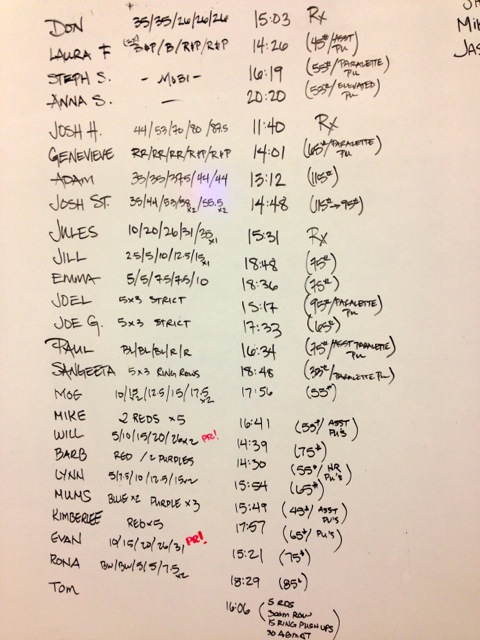 DON 35/35/26/26/26 15:03 Rx
LAURA F (3x) B+P/B/R+P/R+P 14:26 (45#/ASST PU.)
STEPH S. - MOBI - 16:19 (55#/PARALETTE PU.)
ANNA S. — 20:20 (55#/ELEVATED PU.)
JOSH H. 44/53/70/80/87.5 11:40 Rx
GENEVIEVE RR/RR/RR/R+P/R+P 14:01 (65#/PARALETTE PU.)
ADAM 35/35/37.5/44/44 13:12 (115#)
JOSH ST. 35/44/53/53 x2/55.5 x2 14:48 (115#→95#)
JULES 10/20/26/31/35 x1 15:31 Rx
JILL 2.5/5/10/12.5/15 x1 18:48 (75#)
EMMA 5/5/7.5/7.5/10 18:36 (75#)
JOEL 5x3 STRICT 15:17 (95#/PARALETTE PU.)
JOE G. 5x3 STRICT 17:33 (65#)
PAUL BL/BL/BL/R/R 16:34 (75#/ASST PARALETTE PU.)
SANGEETA 5x3 RING ROWS 18:48 (35#/PARALETTE PU.)
MOG 10/12.5/15/17.5 x2 17:56 (55#)
MIKE 2 REDS x5 16:41 (55#/ASST PU'S)
WILL 5/10/15/20/26x2 PR! 14:39 (75#)
BARB RED /2 PURPLES 14:30 (55#/HR PU'S)
LYNN 5/7.5/10/12.5/15x2 15:54 (65#)
MUMS BLUE x2 PURPLE x3 15:49 (45#/ASST PU'S)
KIMBERLEE RED x5 17:57 (65#/PU'S)
EVAN 10/15/20/26/31 PR! 15:21 (75#)
RONA BW/BW/5/5/7.5 x2 18:29 (85#)
TOM 16:06 (5 RDS
300m ROW
15 RING PUSH UPS
30 ABMAT)
Mik
JAS